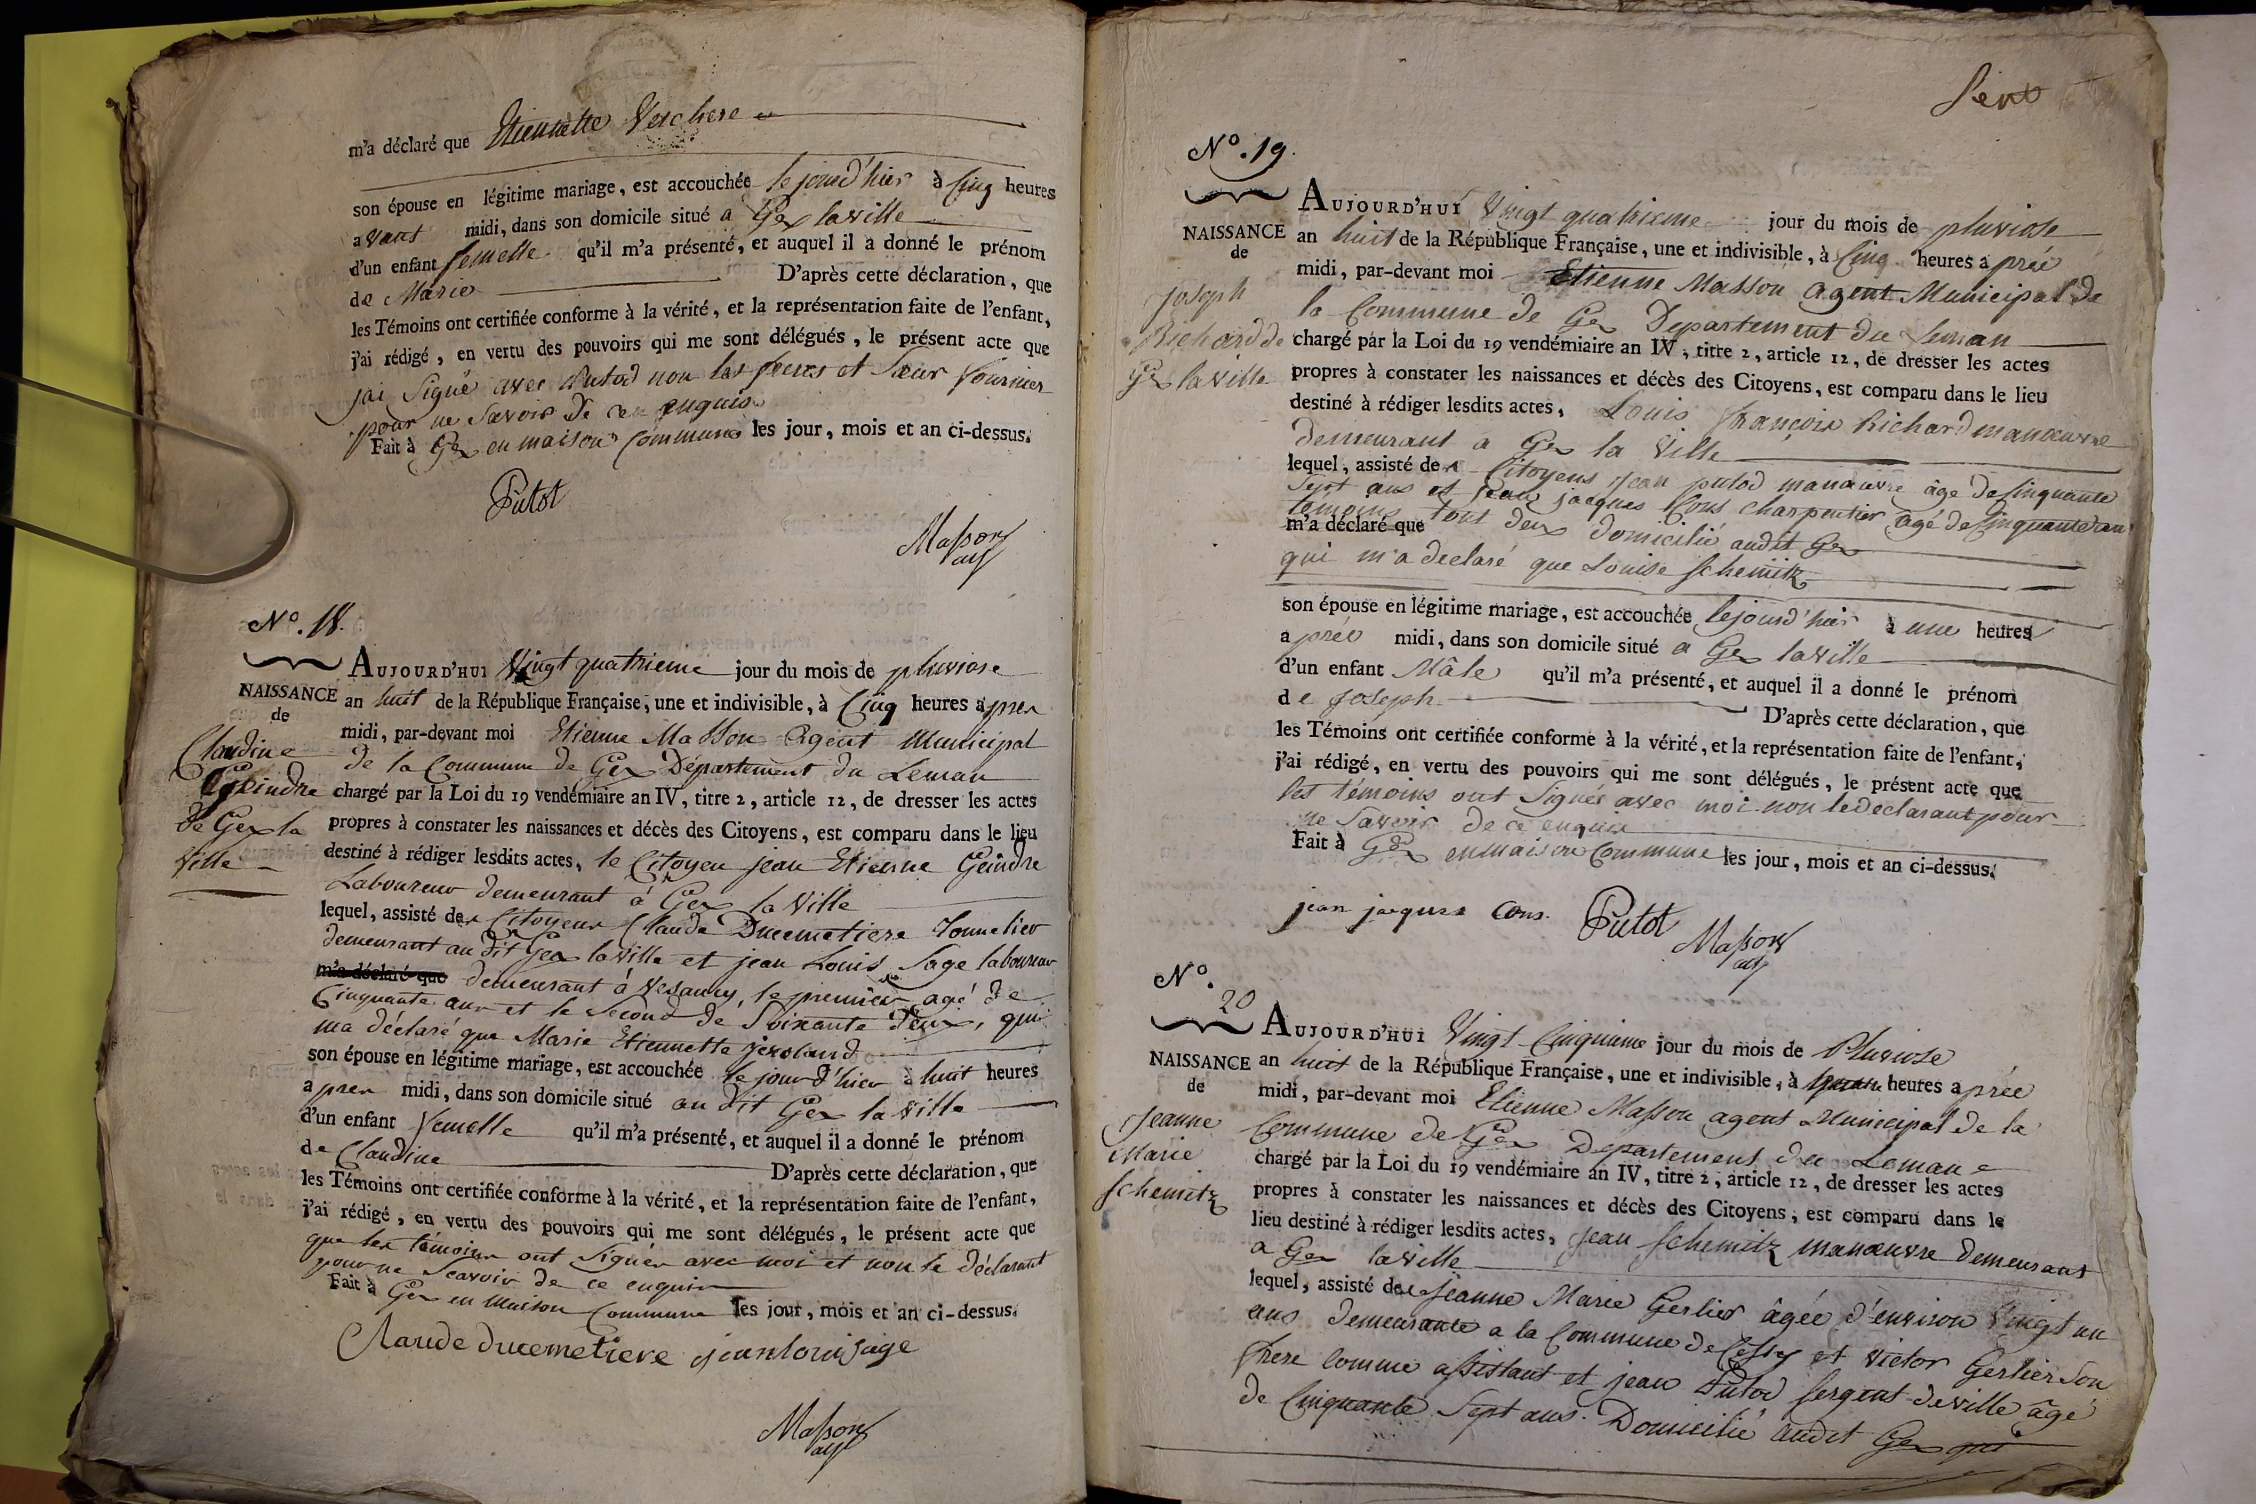 m'a déclaré que Etiennette Verchere
son épouse en légitime mariage, est accouchée le jourd'hier à Cinq heures
avant midi, dans son domicile situé a Gex la ville
d'un enfant femelle qu'il m'a présenté, et auquel il a donné le prénom
de Marie D'après cette déclaration, que
les Témoins ont certifiée conforme à la vérité, et la représentation faite de l'enfant,
j'ai rédigé, en vertu des pouvoirs qui me sont délégués, le présent acte que
jai Signé avec Putod non les freres et Sœur fournier
pour ne Savoir de ce enquis
Fait à Gex en maison Commune les jour, mois et an ci-dessus.
Putot
Masson
agt
N.º 18.
AUJOURD'HUI Vingt quatrieme jour du mois de pluviose
NAISSANCE
de
Claudine
Geindre
de Gex la
ville
an huit de la République Française, une et indivisible, à Cinq heures apres
midi, par-devant moi Etienne Masson Agent Municipal
de la Commune de Gex Département du Leman
chargé par la Loi du 19 vendémiaire an IV, titre 2, article 12, de dresser les actes
propres à constater les naissances et décès des Citoyens, est comparu dans le lieu
destiné à rédiger lesdits actes, le Citoyen jean Etienne Geindre
Laboureur demeurant à Gex la Ville
lequel, assisté des Citoyens Claude Ducemetiere Tonnelier
demeurant au dit Gex la ville et jean Louis Sage laboureur
m'a déclaré que demeurant à Vesancy, le premier agé de
Cinquante ans et le Second de Soixante deux, qui
ma déclaré que Marie Etiennette
son épouse en légitime mariage, est accouchée le jourd'hier à huit heures
apres midi, dans son domicile situé au dit Gex la ville
d'un enfant femelle qu'il m'a présenté, et auquel il a donné le prénom
de Claudine D'après cette déclaration, que
les Témoins ont certifiée conforme à la vérité, et la représentation faite de l'enfant,
j'ai rédigé, en vertu des pouvoirs qui me sont délégués, le présent acte que
que les témoins ont Signés avec moi et non le déclarant
pour ne Scavoir de ce enquis
Fait à Gex en Maison Commune les jour, mois et an ci-dessus.
Claude ducemetiere jean louis sage
Masson
agt
Sept
N.º 19.
NAISSANCE
de
Joseph
Richard de
Gex la ville
AUJOURD'HUI Vingt quatrieme jour du mois de pluviose
an huit de la République Française, une et indivisible, à Cinq heures après
midi, par-devant moi Etienne Masson agent Municipal de
la Commune de Gex Departement du Leman
chargé par la Loi du 19 vendémiaire an IV, titre 2, article 12, de dresser les actes
propres à constater les naissances et décès des Citoyens, est comparu dans le lieu
destiné à rédiger lesdits actes, Louis François Richard manœuvre
demeurant a Gex la Ville
lequel, assisté des Citoyens Jean putod manœuvre âge de Cinquante
Sept ans et jean jacques Cons charpentier âgé de Cinquante ans
témoins tout deux domicilié audit Gex
m'a déclaré que
qui m'a declaré que Louise Schemitz
son épouse en légitime mariage, est accouchée le jourd'hier à une heures
après midi, dans son domicile situé a Gex la ville
d'un enfant Mâle qu'il m'a présenté, et auquel il a donné le prénom
de Joseph D'après cette déclaration, que
les Témoins ont certifiée conforme à la vérité, et la représentation faite de l'enfant,
j'ai rédigé, en vertu des pouvoirs qui me sont délégués, le présent acte que
les témoins ont Signés avec moi non le declarant pour
ne Savoir de ce enquis
Fait à Gex en maison Commune les jour, mois et an ci-dessus.
jean jacques Cons. Putot Masson
agt
N.º
20
AUJOURD'HUI Vingt Cinquieme jour du mois de Pluviose
NAISSANCE
de
Jeanne
Marie
Schemitz
an huit de la République Française, une et indivisible, à heures après
midi, par-devant moi Etienne Masson agent Municipal de la
Commune de Gex Departement du Leman
chargé par la Loi du 19 vendémiaire an IV, titre 2, article 12, de dresser les actes
propres à constater les naissances et décès des Citoyens, est comparu dans le
lieu destiné à rédiger lesdits actes, Jean Schemitz manœuvre demeurant
a Gex la ville
lequel, assisté de Jeanne Marie Gerlier âgée d'environ Vingt un
ans demeurante a la Commune de Cessy et victor Gerlier Son
frere comme assistant et jean Putod sergent de ville âgé
de Cinquante Sept ans. Domicilié audit Gex qui